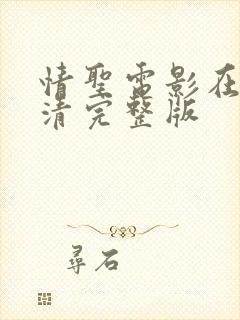 情聖電影在
清完整版
尋石